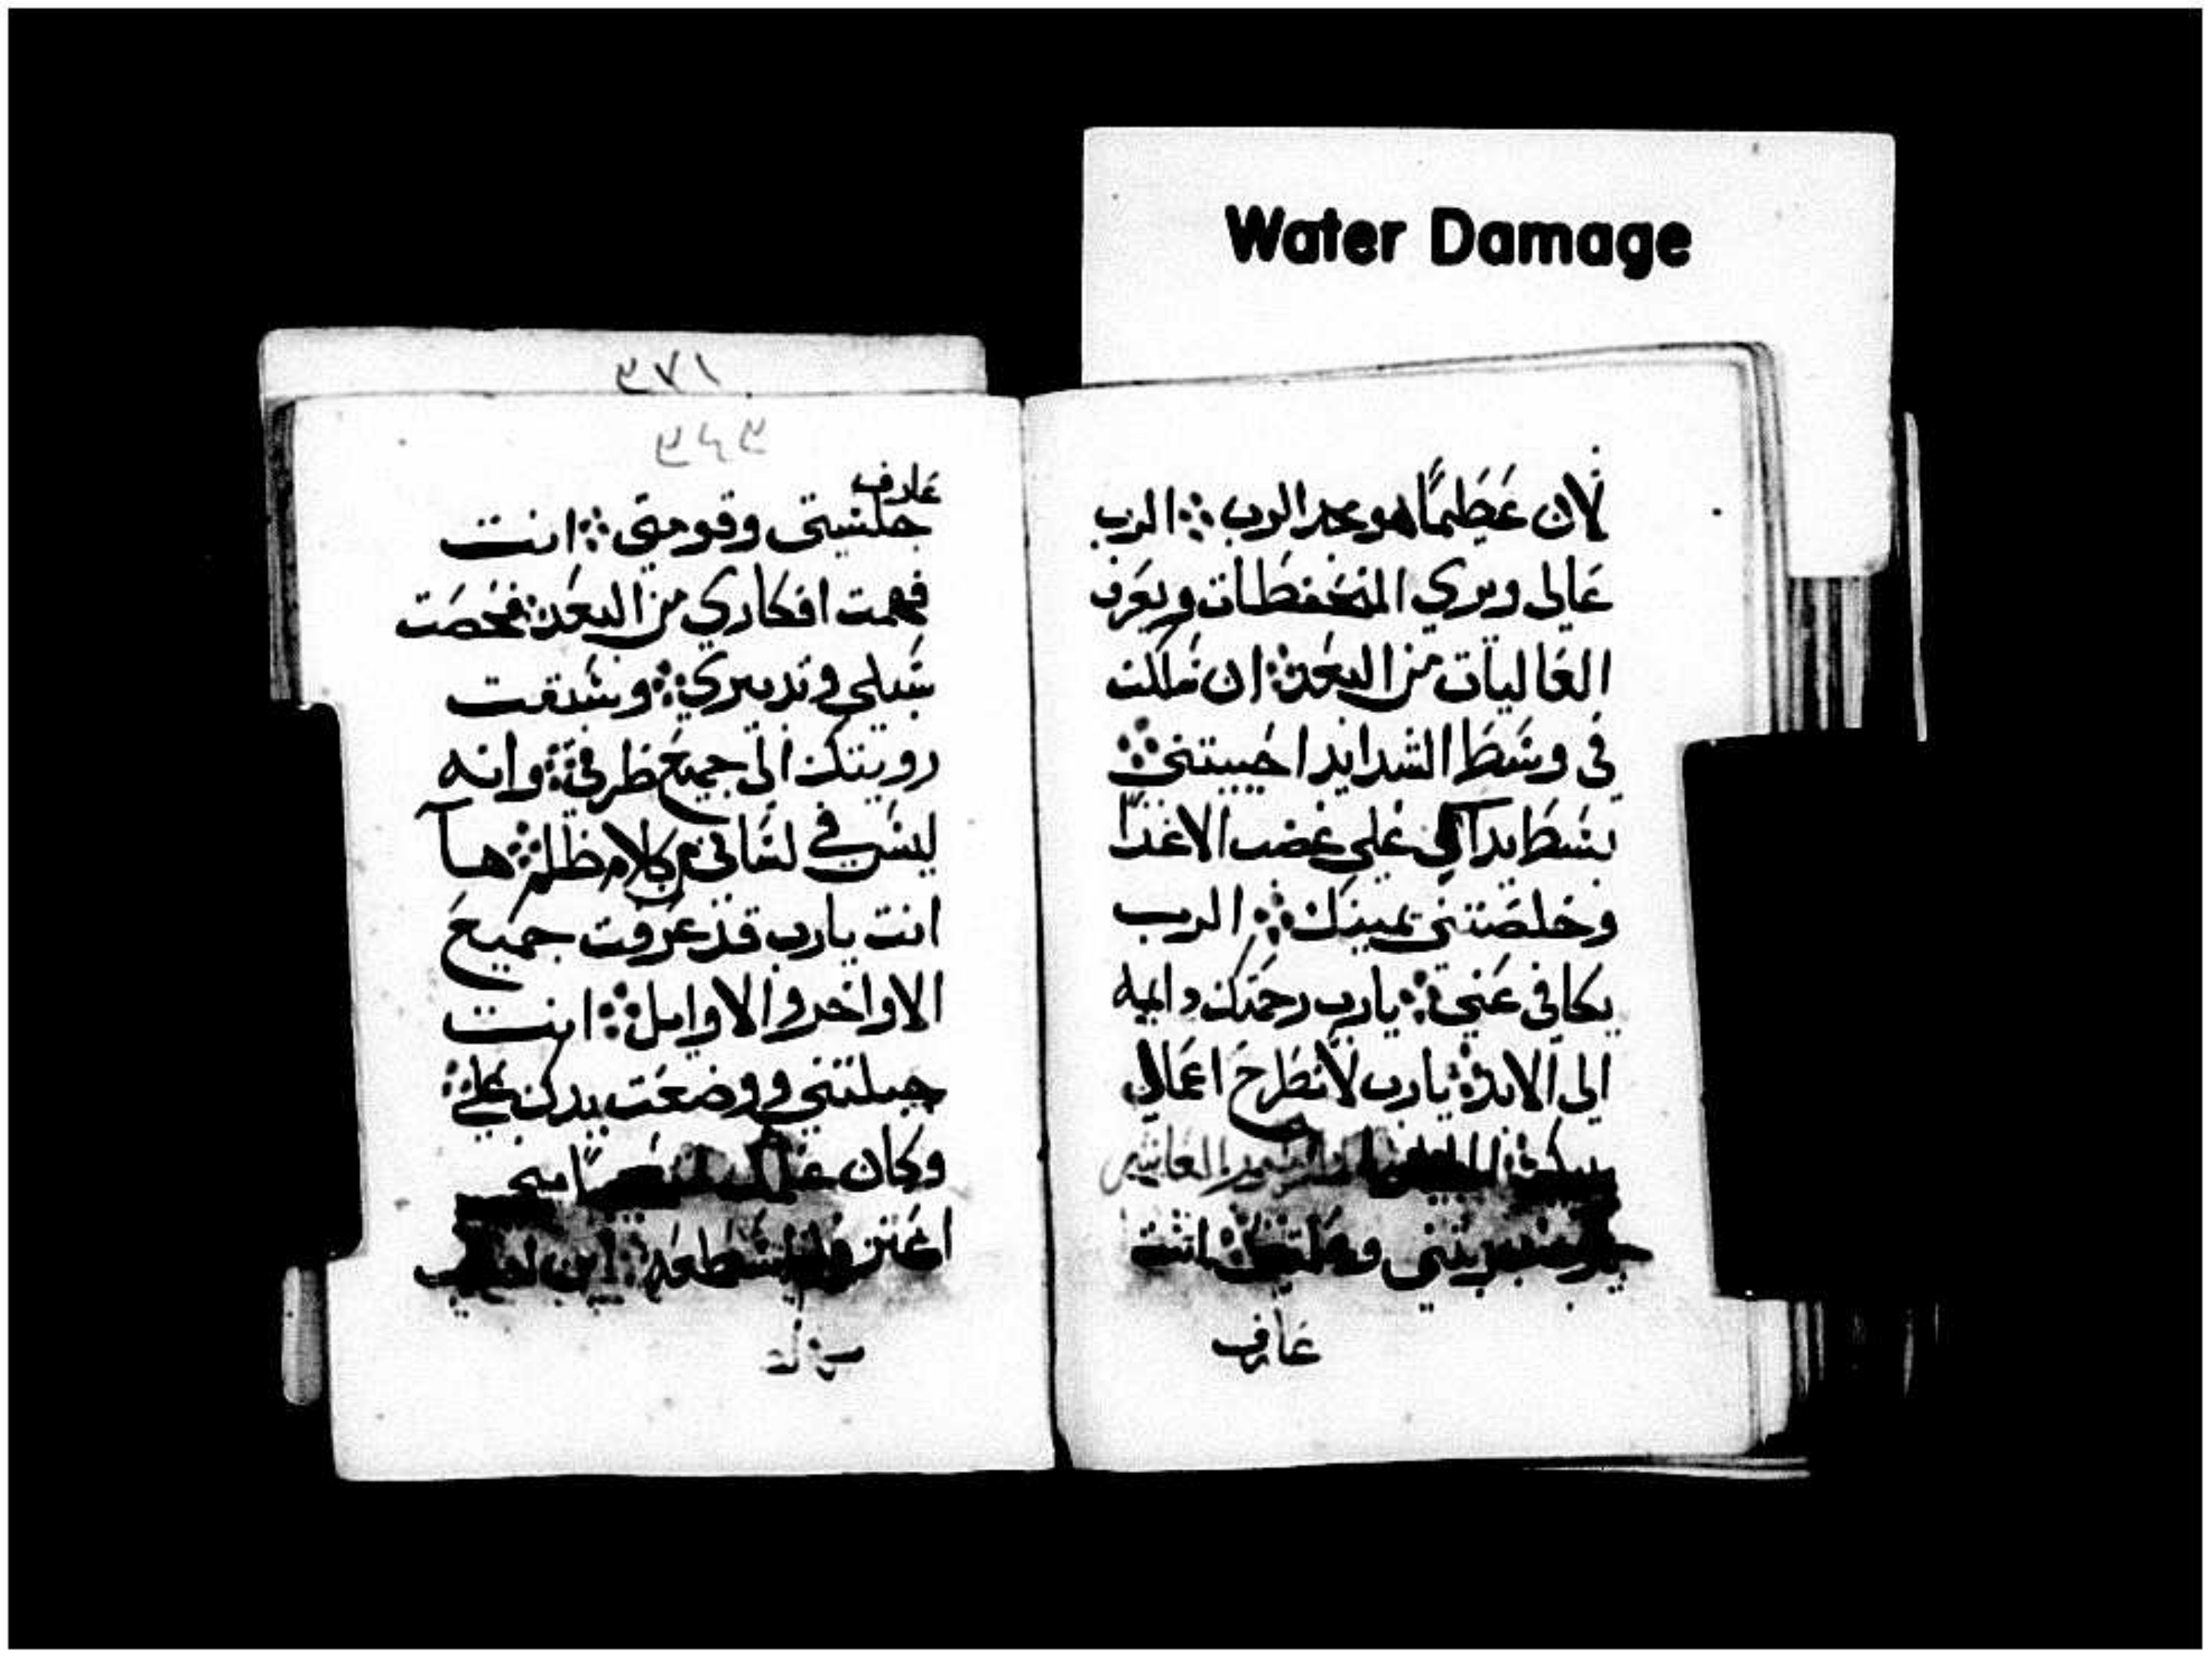 Water Damage
لان عظيمًا هو مجد الرب ⁘ الرب
عالى ويري المنخفظات ويعرف
العاليات من البعد ⁘ ان سلكت
في وسط الشدايد احييتني ⁘
بسط يدك على غضب الاعدا
وخلصتني يمينك ⁘ الرب
يكافي عني ⁘ يارب رحمتك دايمه
الى الابد ⁘ يارب لا تطرح اعمال
يديك ⁘ العاشر
يارب جربتني وعلمتني ⁘ انت
عارف
١٧٩
عارف
جلستي وقومتي ⁘ انت
فهمت افكاري من البعد ⁘ فحصت
سبلي وتدبيري ⁘ وسبقت
رويتك الى جميع طرقي ⁘ وانه
ليس في لساني كلام ظلم ⁘ ها
انت يارب قد عرفت جميع
الاواخر والاوايل ⁘ انت
جبلتني ووضعت يدك علي ⁘
وكان
اعتز ⁘ اين اهرب